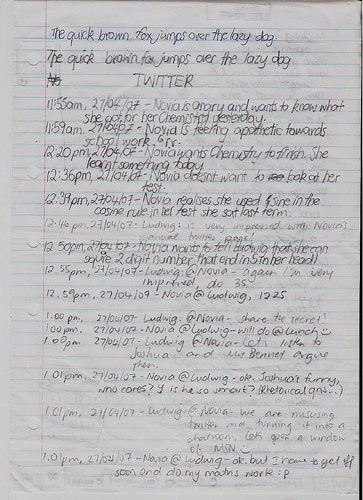 The quick brown fox jumps over the lazy dog.
The quick brown fox jumps over the lazy dog
TWITTER
11:55am, 27/04/07 - Novia is angry and wants to know what
she got for her Chemistry test yesterday.
11:59am, 27/04/07 - Novia is feeling apathetic towards
school work. Grr.
12:20pm, 27/04/07 - Novia wants Chemistry to finish. She
learnt something today.
12:36pm, 27/04/07 - Novia doesnt want to look at her
test.
12:39pm, 27/04/07 - Novia realises she used sine in the
cosine rule in her test she sat last term.
12:40pm, 27/04/07 - Ludwig: is very impressed with Novia's
twitter page!
12.50pm, 27/04/07 - Novia wants to tell Ludwig that she can
square 2 digit number that end in 5 in her head!
12.55pm, 27/04/07 - Ludwig: @Novia - again I'm very
impressed, do 35
12.59pm, 27/04/07 - Novia @ Ludwig, 1225
1.00pm, 27/04/07 - Ludwig: @Novia - share the secret!
1.00pm, 27/04/07 - Novia @Ludwig - will do @ lunch
1.00pm 27/04/07 - Ludwig @ Novia - Let's listen to
Joshua and Mrs Bennet argue
then.
1.01pm, 27/04/07 - Novia @ Ludwig - ok. Joshua's funny,
who cares? Y is he so smart? (Rhetorical qn...)
1.01pm, 27/04/07 - Ludwig: @ Novia - we are misusing
twitter and turning it into a
chatroom. Lets open a window
of MSN
1.01pm, 27/04/07 - Novia @ Ludwig - ok. but I have to get off
soon and do my maths work :p